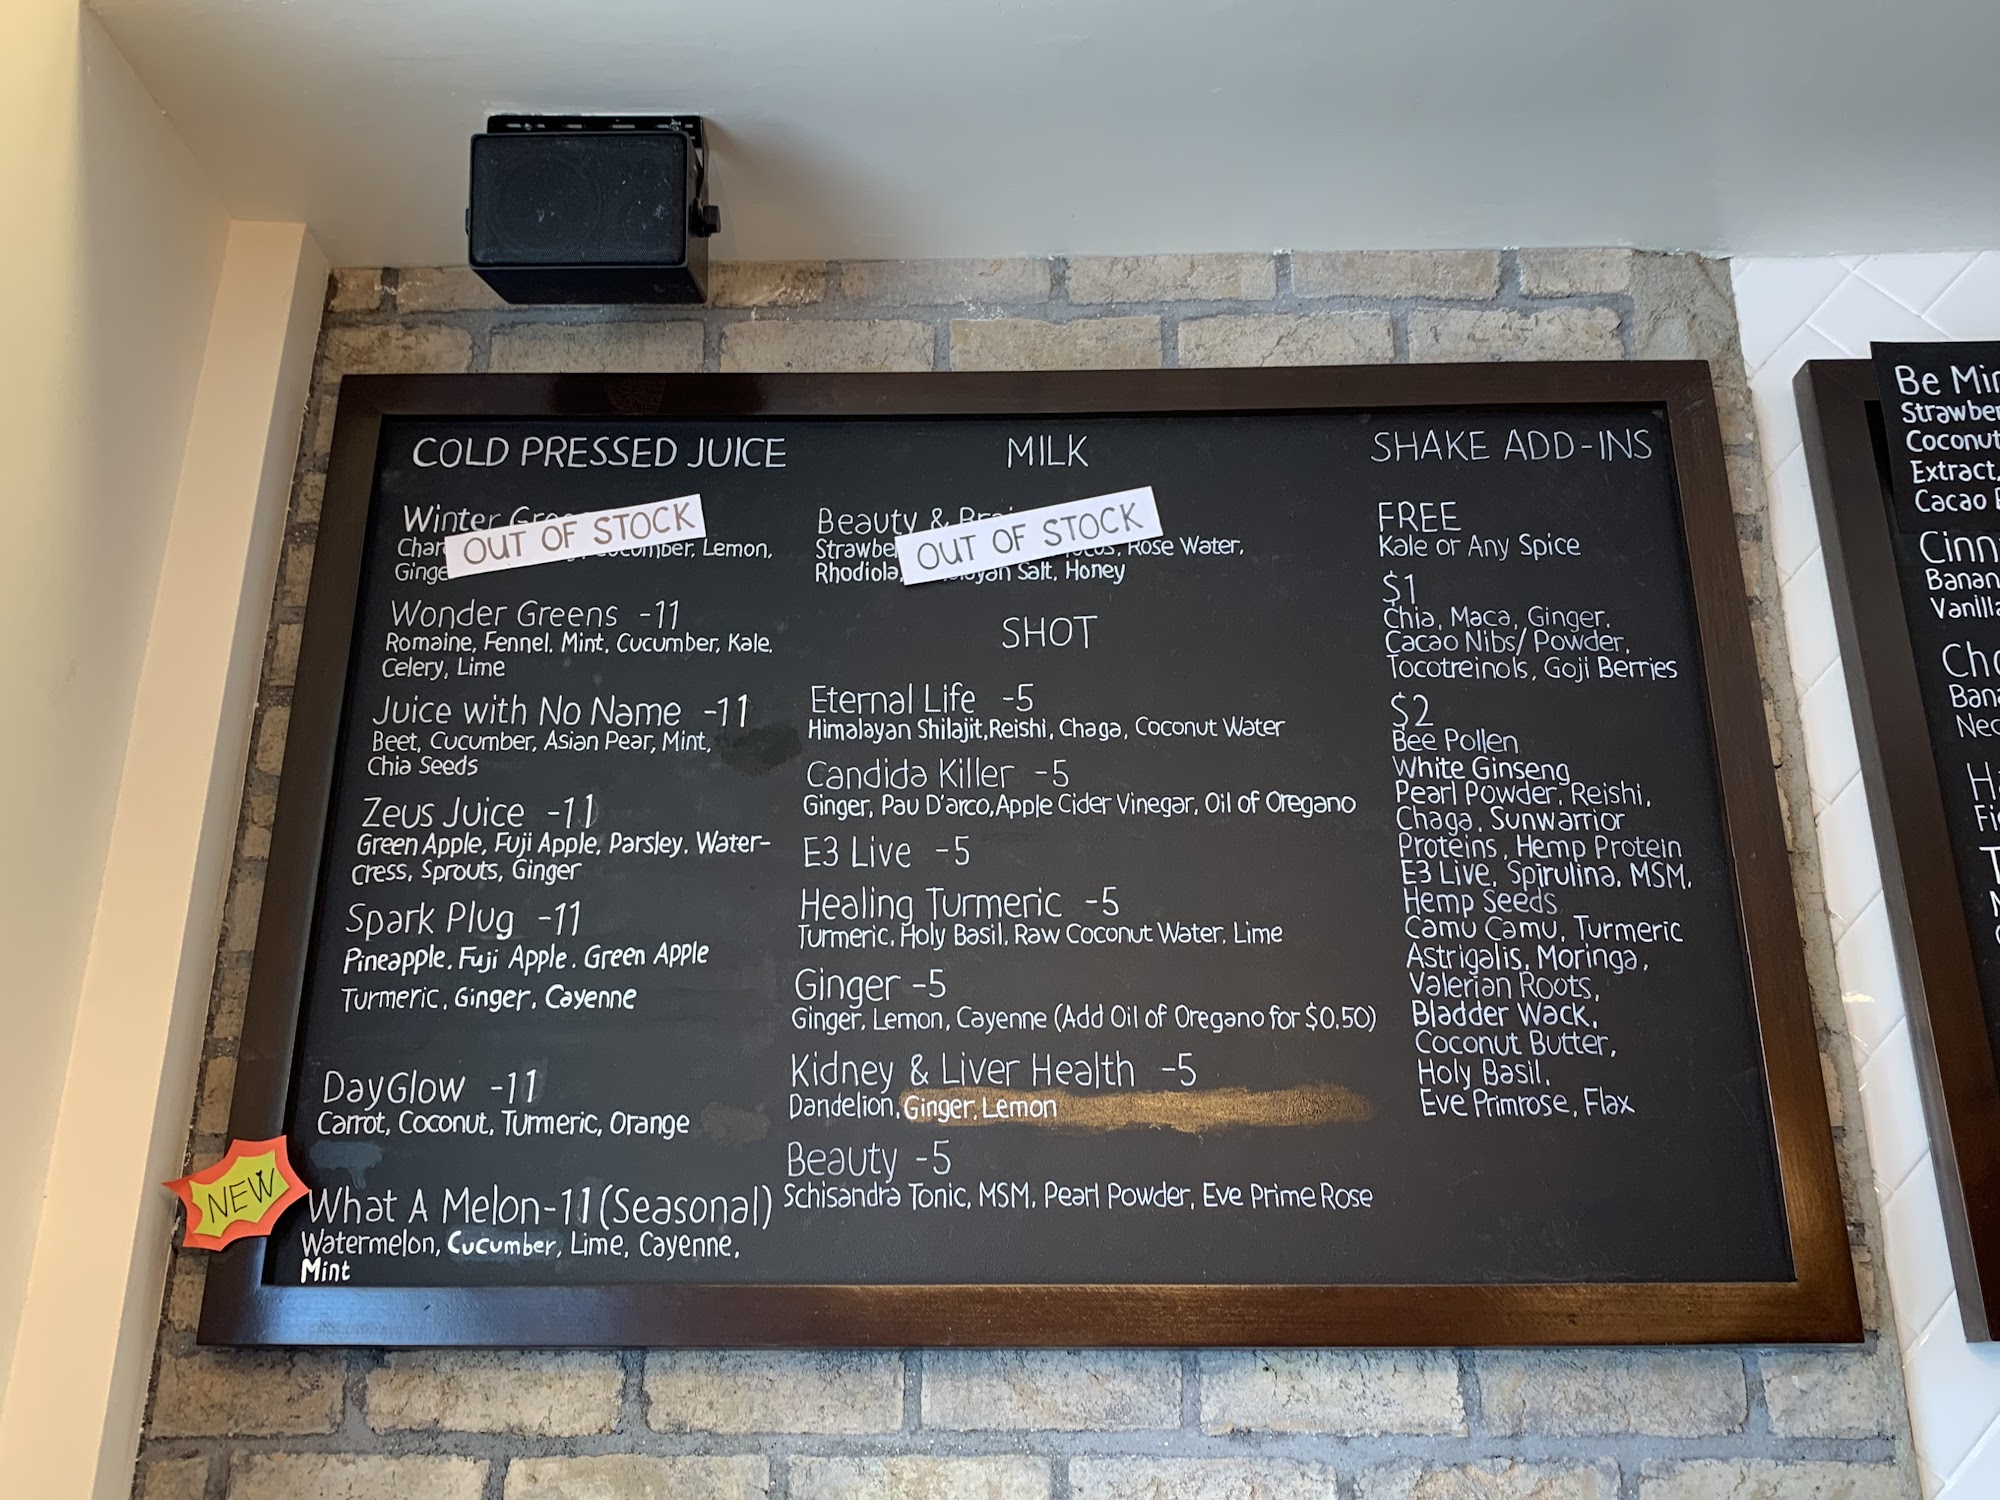 COLD PRESSED JUICE
Winter
OUT OF STOCK
Lemon,
Wonder Greens -11
Romaine, Fennel. Mint, Cucumber, Kale.
Celery, Lime
Juice with No Name -11
Beet, Cucumber, Asian Pear, Mint,
Chia Seeds
Zeus Juice -11
Green Apple, Fuji Apple, Parsley, Water-
cress, Sprouts, Ginger
Spark Plug -11
Pineapple, Fuji Apple. Green Apple
Turmeric, Ginger, Cayenne
DayGlow -11
Carrot, Coconut, Turmeric, Orange
NEW
What A Melon-11(Seasonal)
Watermelon, Cucumber, Lime, Cayenne,
Mint
MILK
Beauty &
OUT OF STOCK
Rose Water,
Rhodiola, Salt, Honey
SHOT
Eternal Life -5
Himalayan Shilajit,Reishi, Chaga, Coconut Water
Candida Killer -5
Ginger, Pau D'arco,Apple Cider Vinegar, Oil of Oregano
E3 Live -5
Healing Turmeric -5
Turmeric, Holy Basil, Raw Coconut Water, Lime
Ginger -5
Ginger, Lemon, Cayenne (Add Oil of Oregano for $0.50)
Kidney & Liver Health -5
Dandelion, Ginger, Lemon
Beauty -5
Schisandra Tonic, MSM, Pearl Powder, Eve Prime Rose
SHAKE ADD-INS
FREE
Kale or Any Spice
$1
Chia, Maca, Ginger,
Cacao Nibs/ Powder,
Tocotreinols, Goji Berries
$2
Bee Pollen
White Ginseng
Pearl Powder, Reishi,
Chaga, Sunwarrior
Proteins, Hemp Protein
E3 Live, Spirulina, MSM,
Hemp Seeds
Camu Camu, Turmeric
Astrigalis, Moringa,
Valerian Roots,
Bladder Wack,
Coconut Butter,
Holy Basil,
Eve Primrose, Flax
Be
Coconut
Extract,
Cacao